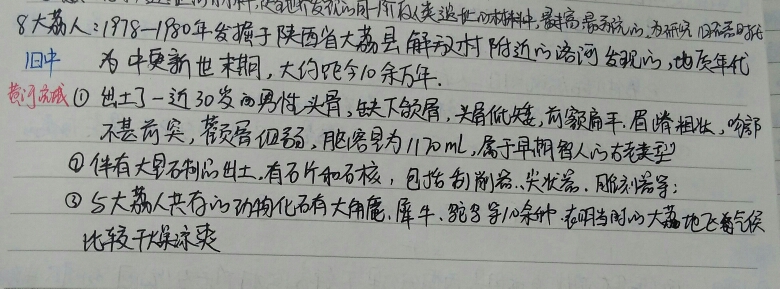 发现的同一阶段人类遗址的材料中,最丰富最系统的,为研究旧石器时代
8 大荔人:1978—1980年发掘于陕西省大荔县解放村附近的洛河发现的,地质年代
旧中 为中更新世末期,大约距今10余万年.
黄河流域 ① 出土了一近30岁的男性头骨,缺下颌骨,头骨低矮,前额扁平.眉嵴粗壮,吻部
不甚前突,颧骨细弱,脑容量为1170mL,属于早期智人的古老类型
② 伴有大量石制品出土.有石片和石核,包括刮削器、尖状器、雕刻器等;
③ 与大荔人共存的动物化石有大角鹿、犀牛、鸵鸟等10余种.表明当时的大荔地区气候
比较干燥凉爽